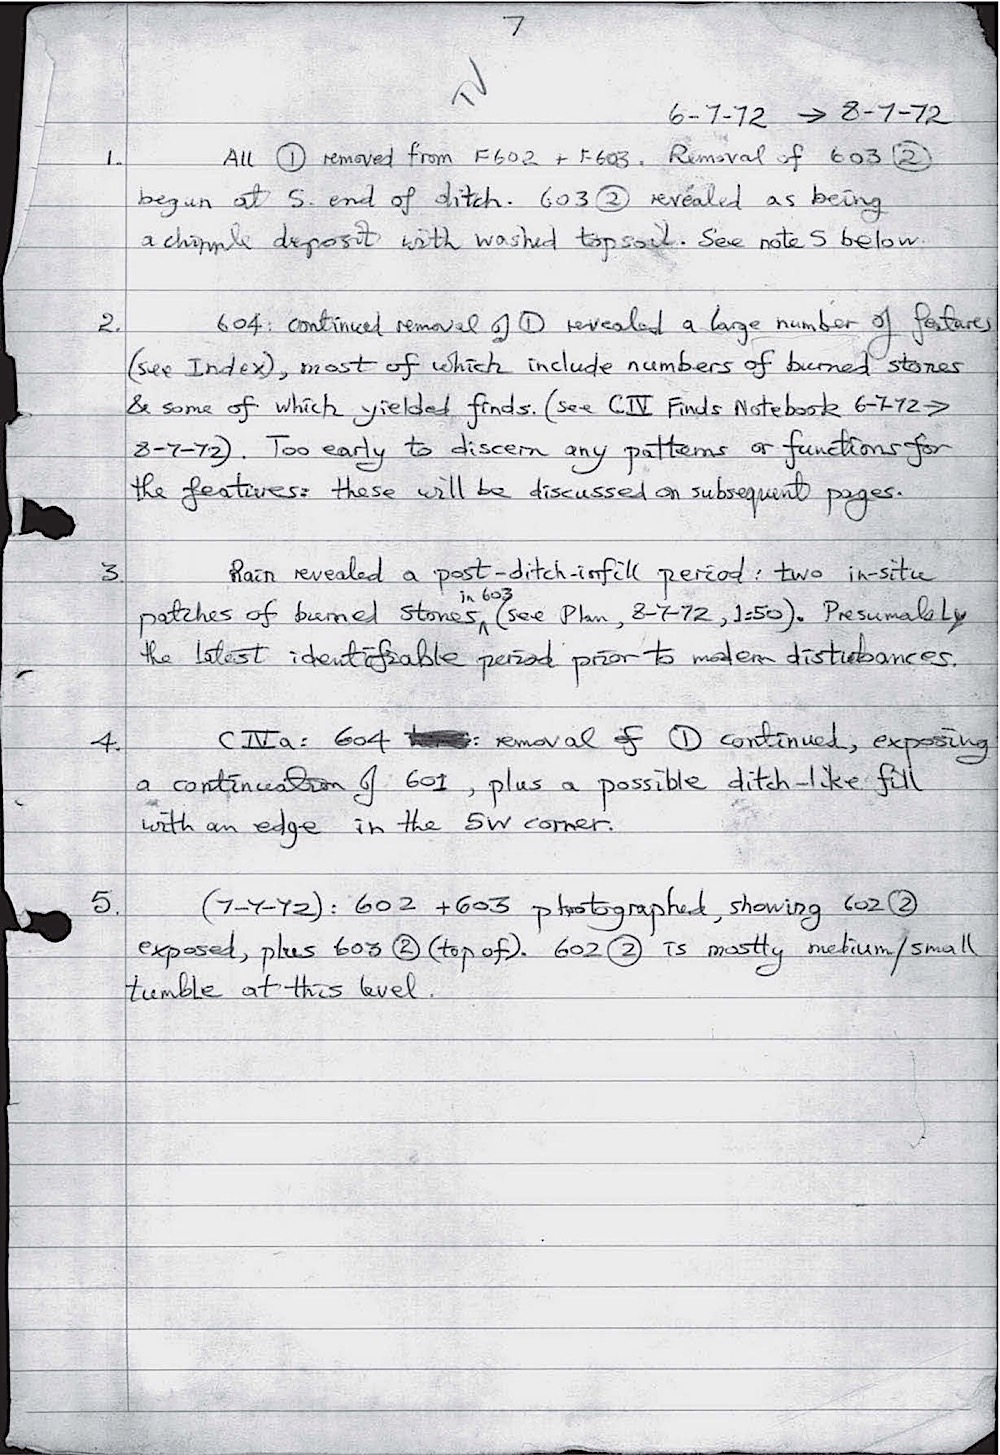 7
IV
6-7-72 → 8-7-72
1. All ① removed from F602 + F603. Removal of 603 ②
begun at S. end of ditch. 603 ② revealed as being
a deposit with washed topsoil. See note 5 below.
2. 604: continued removal of ① revealed a large number of features
(see Index), most of which include numbers of burned stones
& some of which yielded finds. (see CIV Finds Notebook 6-7-72 →
8-7-72). Too early to discern any patterns or functions for
the features: these will be discussed on subsequent pages.
3. Rain revealed a post-ditch-infill period: two in-situ
in 603
patches of burned stones ^ (see Plan, 8-7-72, 1:50). Presumably
the latest identifiable period prior to modern disturbances.
4. CIVa: 604 : removal of ① continued, exposing
a continuation of 601, plus a possible ditch-like fill
with an edge in the SW corner.
5. (7-7-72): 602 + 603 photographed, showing 602 ②
exposed, plus 603 ② (top of). 602 ② is mostly medium/small
tumble at this level.